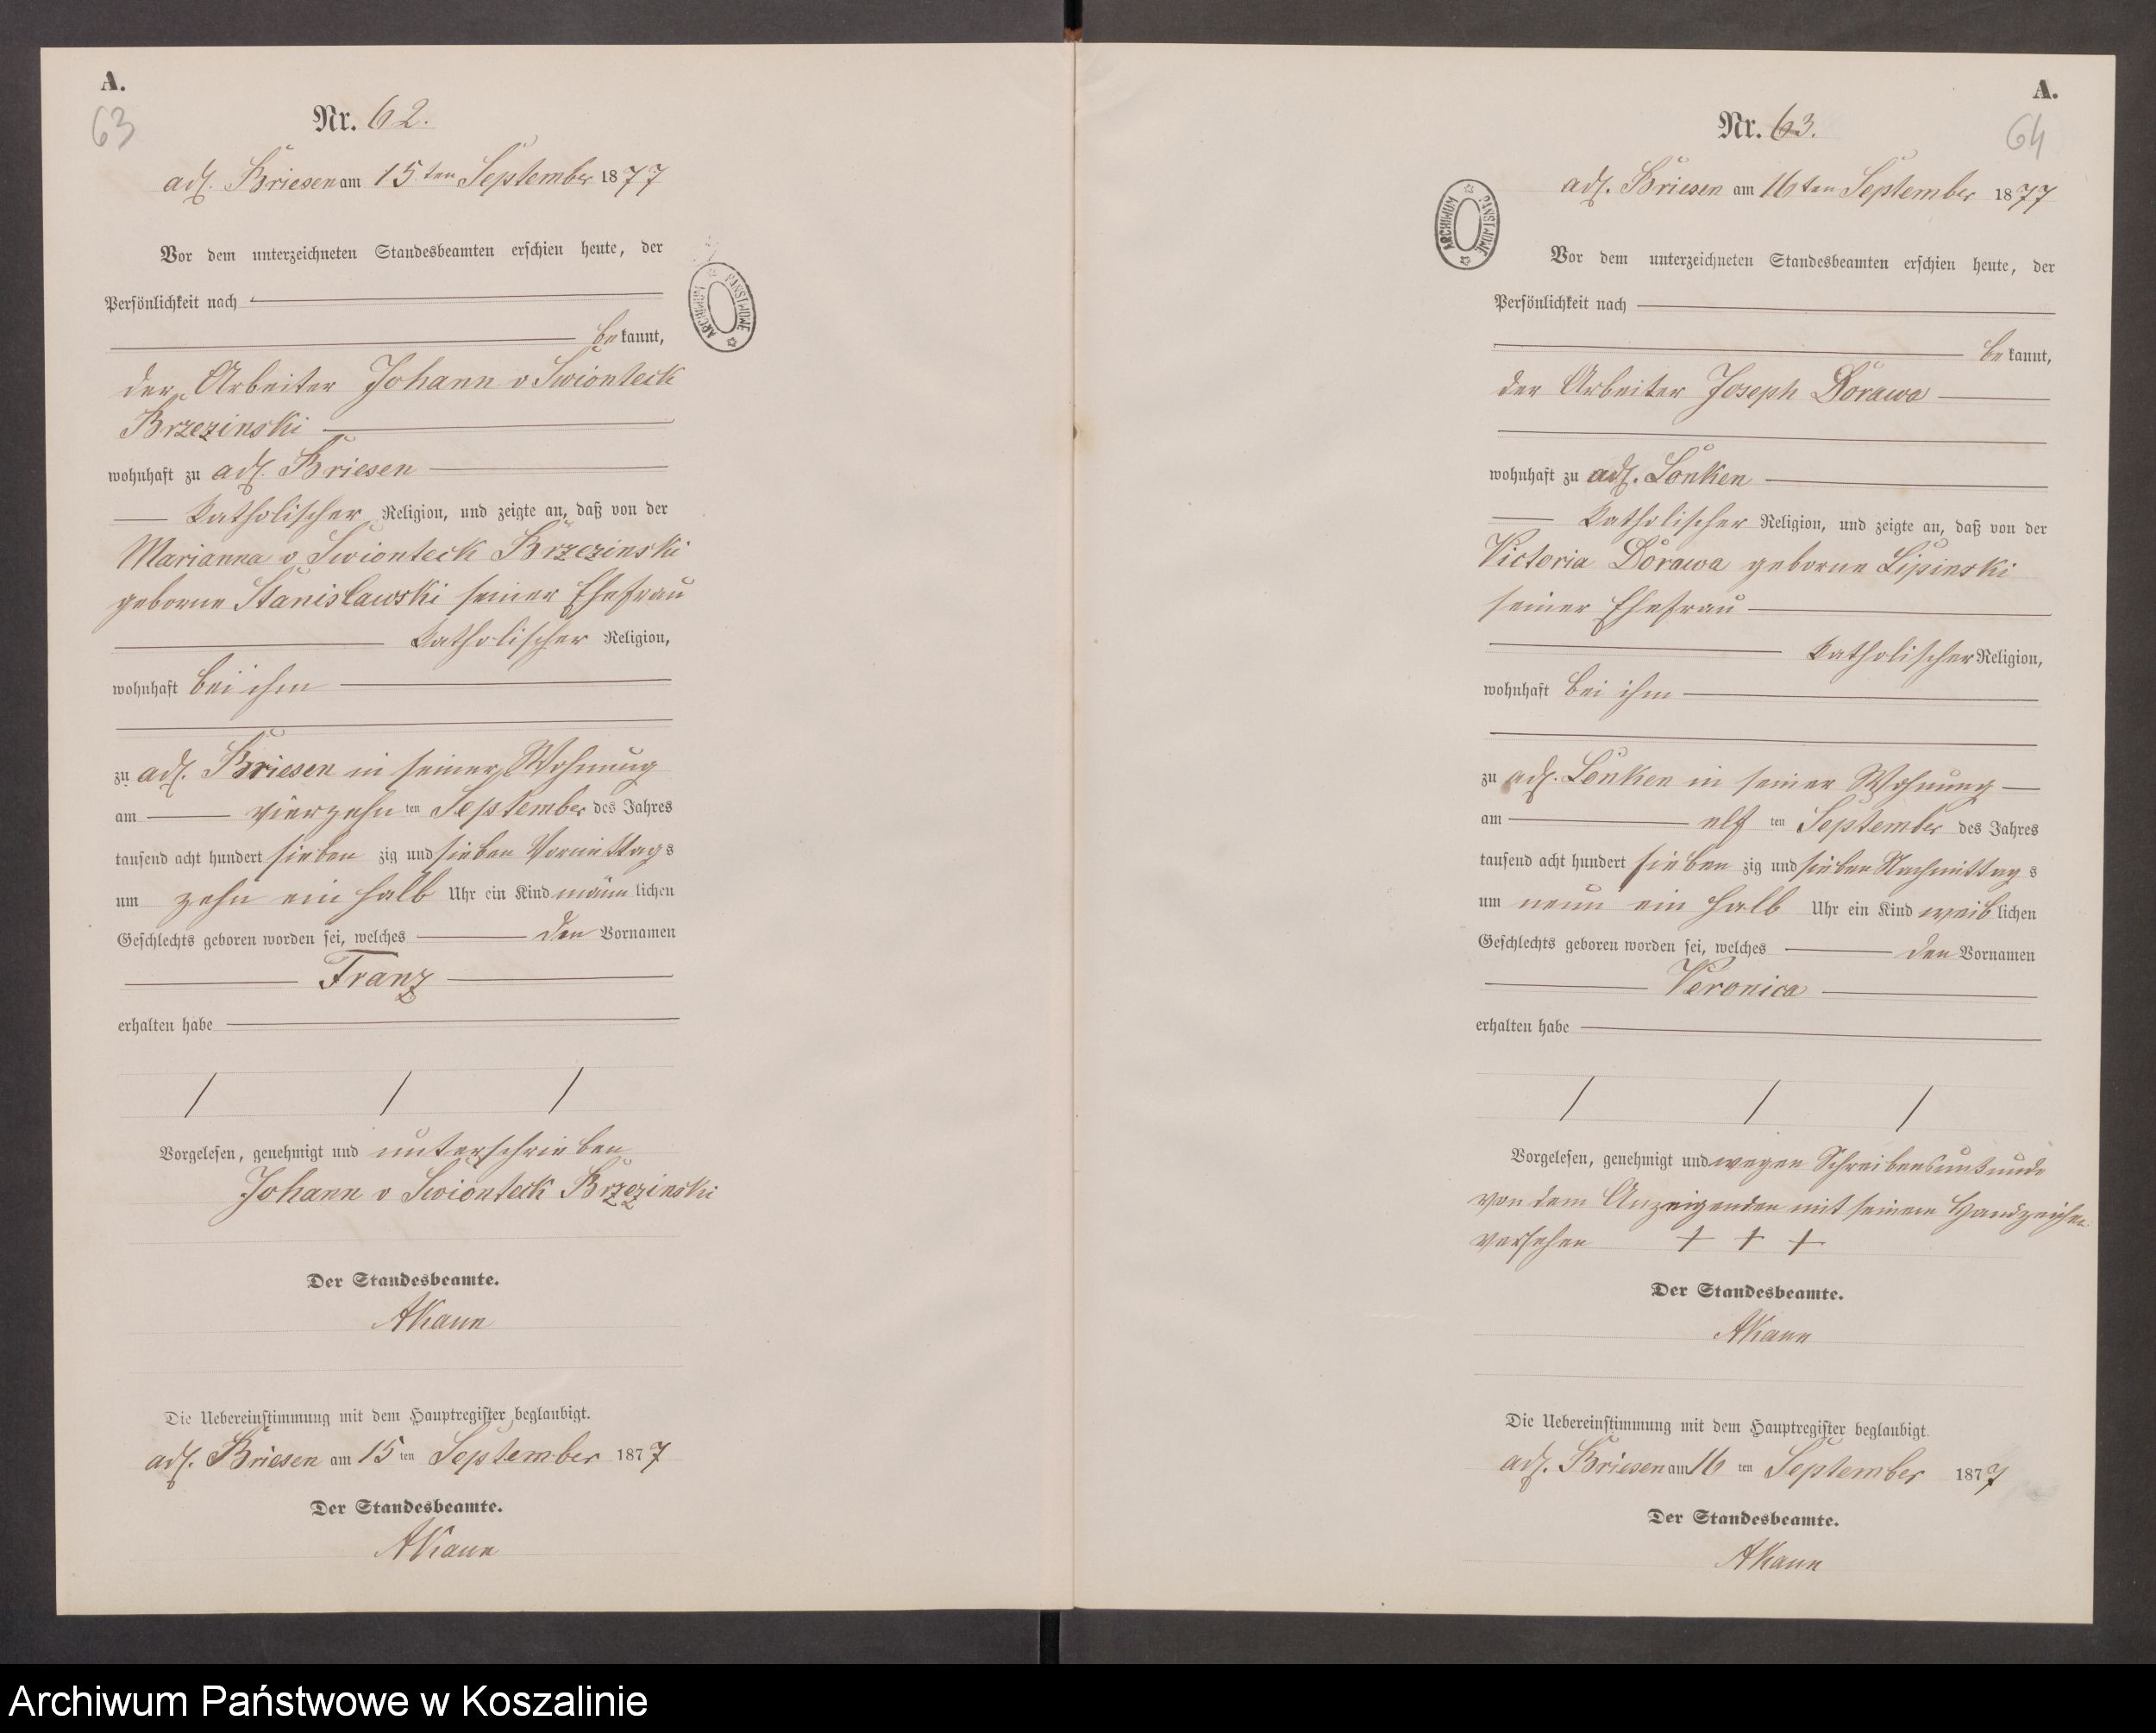 A.
63
Nr. 62.
adl. Briesen am 15ten September 1877
Vor dem unterzeichneten Standesbeamten erschien heute, der
Persönlichkeit nach
bekannt,
der Arbeiter Johann v Swionteck
Brzezinski
wohnhaft zu adl. Briesen
katholischer Religion, und zeigte an, daß von der
Marianna v Swionteck Brzezinski
geborne Stanislawski seiner Ehefrau
katholischer Religion,
wohnhaft bei ihm
zu adl. Briesen in seiner Wohnung
am vierzehn ten September des Jahres
tausend acht hundert sieben zig und sieben Vormittags
um zehn ein halb Uhr ein Kind männlichen
Geschlechts geboren worden sei, welches den Vornamen
Franz
erhalten habe
Vorgelesen, genehmigt und unterschrieben
Johann v Swionteck Brzezinski
Der Standesbeamte.
AKann
Die Uebereinstimmung mit dem Hauptregister beglaubigt.
adl. Briesen am 15 ten September 1877
Der Standesbeamte.
AKann
ARCHIWUM PAŃSTWOWE
A.
64
Nr. 63.
adl. Briesen am 16ten September 1877
ARCHIWUM PAŃSTWOWE
Vor dem unterzeichneten Standesbeamten erschien heute, der
Persönlichkeit nach
bekannt,
der Arbeiter Joseph Dorawa
wohnhaft zu adl. Lonken
katholischer Religion, und zeigte an, daß von der
Victoria Dorawa geborne Lipinski
seiner Ehefrau
katholischer Religion,
wohnhaft bei ihm
zu adl. Lonken in seiner Wohnung
am elf ten September des Jahres
tausend acht hundert sieben zig und sieben Nachmittags
um neun ein halb Uhr ein Kind weiblichen
Geschlechts geboren worden sei, welches den Vornamen
Veronica
erhalten habe
Vorgelesen, genehmigt und wegen Schreibensunkunde
von dem Anzeigenden mit seinem Handzeichen
versehen + + +
Der Standesbeamte.
AKann
Die Uebereinstimmung mit dem Hauptregister beglaubigt.
adl. Briesen am 16 ten September 1877
Der Standesbeamte.
AKann
Archiwum Państwowe w Koszalinie